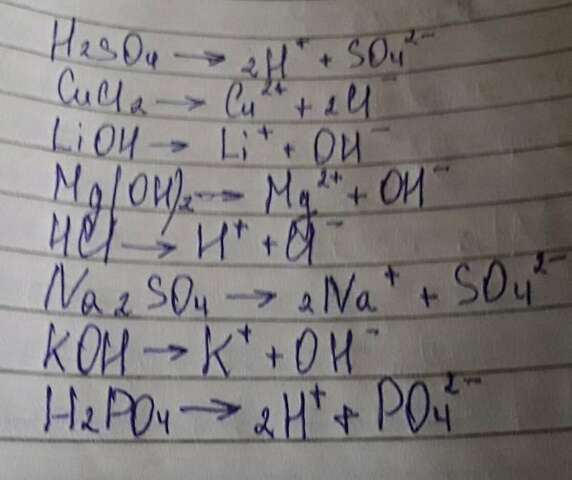 H₂SO₄ → 2H⁺ + SO₄²⁻
CuCl₂ → Cu²⁺ + 2Cl⁻
LiOH → Li⁺ + OH⁻
Mg(OH)₂ → Mg²⁺ + OH⁻
HCl → H⁺ + Cl⁻
Na₂SO₄ → 2Na⁺ + SO₄²⁻
KOH → K⁺ + OH⁻
H₂PO₄ → 2H⁺ + PO₄²⁻